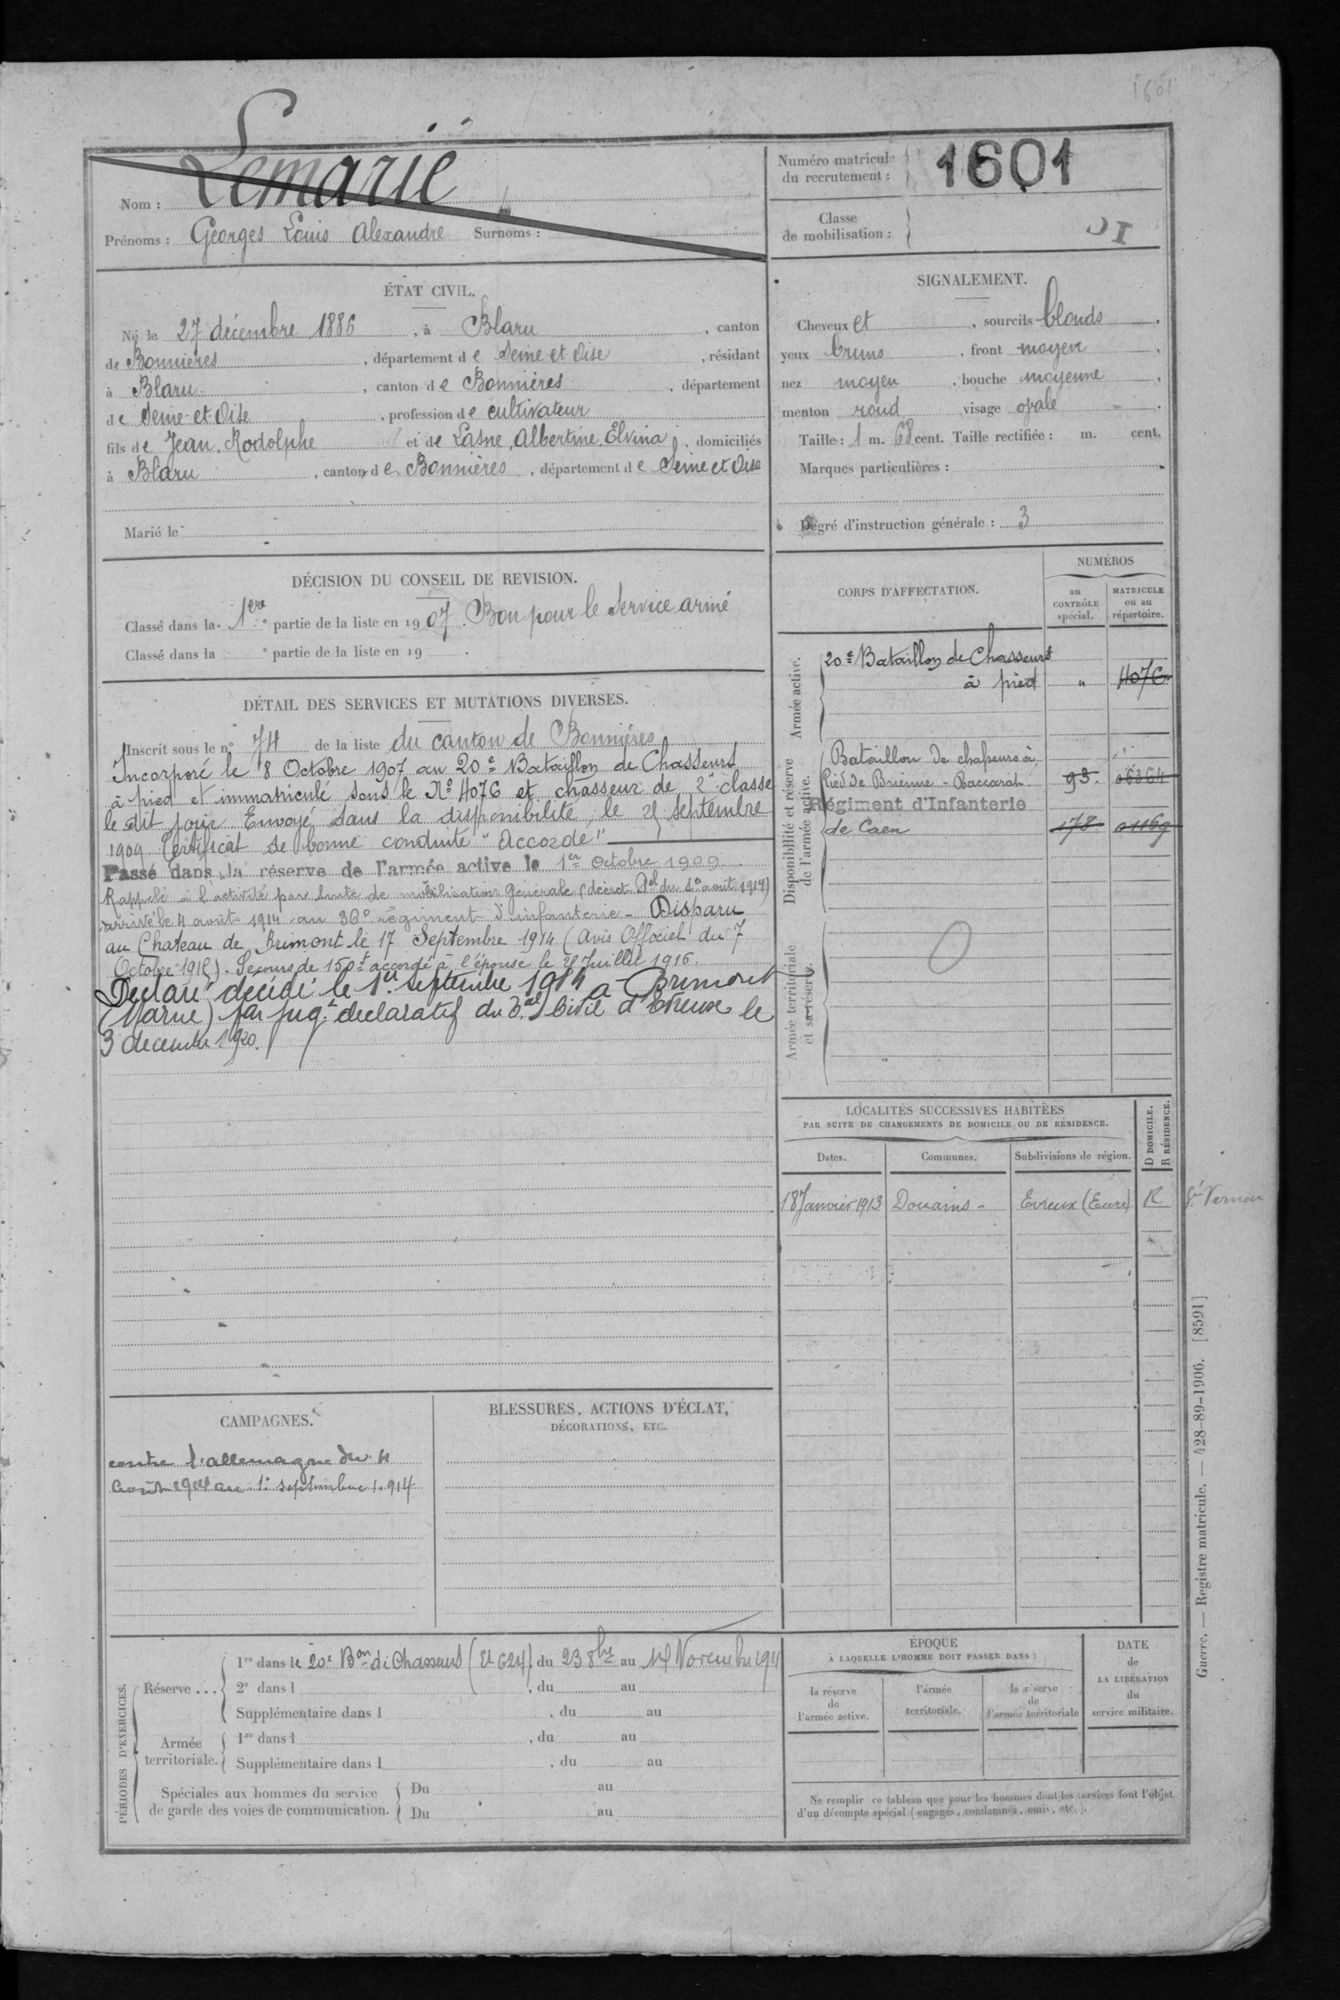 1601
Nom : Lemarié
Prénoms : Georges Louis Alexandre Surnoms :
Numéro matricule du recrutement : 1601
Classe de mobilisation :
ÉTAT CIVIL.
Né le 27 décembre 1886, à Blaru, canton
de Bonnières, département de Seine et Oise, résidant
à Blaru, canton de Bonnières, département
de Seine-et-Oise, profession de cultivateur
fils de Jean Rodolphe et de Lasne, Albertine Elvina, domiciliés
à Blaru, canton de Bonnières, département de Seine et Oise
Marié le
SIGNALEMENT.
Cheveux et, sourcils blonds,
yeux bruns, front moyen,
nez moyen, bouche moyenne,
menton rond visage ovale
Taille : 1 m. 68 cent. Taille rectifiée : m. cent.
Marques particulières :
Degré d'instruction générale : 3
DÉCISION DU CONSEIL DE REVISION.
Classé dans la 1ere partie de la liste en 1907. Bon pour le service armé
Classé dans la e partie de la liste en 19 .
DÉTAIL DES SERVICES ET MUTATIONS DIVERSES.
Inscrit sous le n° 74 de la liste du canton de Bonnières
Incorporé le 8 Octobre 1907 au 20e Bataillon de Chasseurs
à pied et immatriculé sous le No 4076 et chasseur de 2e classe
le dit jour. Envoyé dans la disponibilité, le 25 septembre
1909 Certificat de bonne conduite "Accordé"
Passé dans la réserve de l'armée active le 1er Octobre 1909
Rappelé à l'activité par suite de mobilisation Générale (décret du 1er août 1914)
arrivé le 4 août 1914 au 36e régiment d'infanterie. Disparu
au Chateau de Brimont le 17 Septembre 1914 (Avis Officiel du 7
Octobre 1915). Secours de 150f accordé à l'épouse le 25 Juillet 1916.
Déclaré décédé le 1er septembre 1914 à Brimont
(Marne) par jugt déclaratif du Tal Civil d'Evreux le
3 decembre 1920.
CORPS D'AFFECTATION.
NUMÉROS
au CONTRÔLE spécial.
MATRICULE ou au répertoire.
Armée active.
20e Bataillon de Chasseurs
à pied " 4076
Disponibilité et réserve de l'armée active.
Bataillon de chasseurs à
Pied de Brienne - Baccarat 93
Régiment d'Infanterie
de Caen 178 01169
Armée territoriale et sa réserve.
LOCALITÉS SUCCESSIVES HABITÉES
PAR SUITE DE CHANGEMENTS DE DOMICILE OU DE RÉSIDENCE.
D DOMICILE. R RÉSIDENCE.
Dates. Communes. Subdivisions de région.
18 Janvier 1913 Douains - Evreux (Eure) R Vernon
CAMPAGNES.
contre l'allemagne du 4
août 1914 au 1er septembre 1914
BLESSURES, ACTIONS D'ÉCLAT,
DÉCORATIONS, ETC.
PÉRIODES D'EXERCICES.
Réserve ...
1re dans le 20e Bon de Chasseurs du 23 8bre au Novembre 191
2e dans l , du au
Supplémentaire dans l , du au
Armée territoriale.
1re dans l , du au
Supplémentaire dans l , du au
Spéciales aux hommes du service de garde des voies de communication.
Du au
Du au
ÉPOQUE
À LAQUELLE L'HOMME DOIT PASSER DANS :
la réserve de l'armée active.
l'armée territoriale.
la réserve de l'armée territoriale
DATE de LA LIBÉRATION du service militaire.
Ne remplir ce tableau que pour les hommes dont les services font l'objet
d'un décompte spécial (engagés, condamnés, omis, etc.).
Guerre. — Registre matricule. — 428-89-1906. [8591]